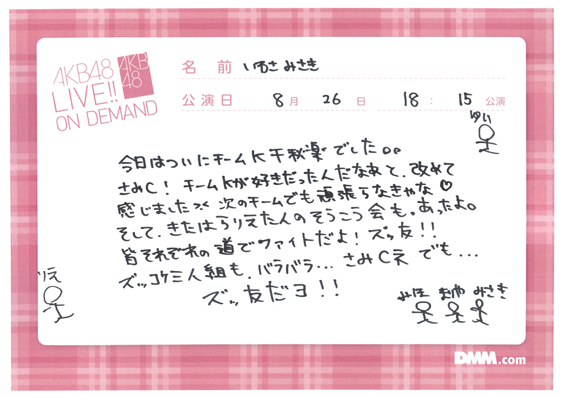 AKB48
LIVE!!
ON DEMAND
AKB
48
名 前 いわさ みさき
公演日 8 月 26 日 18 : 15 公演
ゆい
今日はついにチームK千秋楽でした。。
さみC! チームKが好きだったんだなあと、改めて
感じました>< 次のチームでも頑張らなきゃな♡
そして、きたはらりえたんのそうこう会も。あったよ。
皆それぞれの道でファイトだよ! ズッ友!!
ズッコケ三人組も、バラバラ... さみCネ でも...
ズッ友だヨ!!
りえ
みほ まゆ みさき
DMM.com